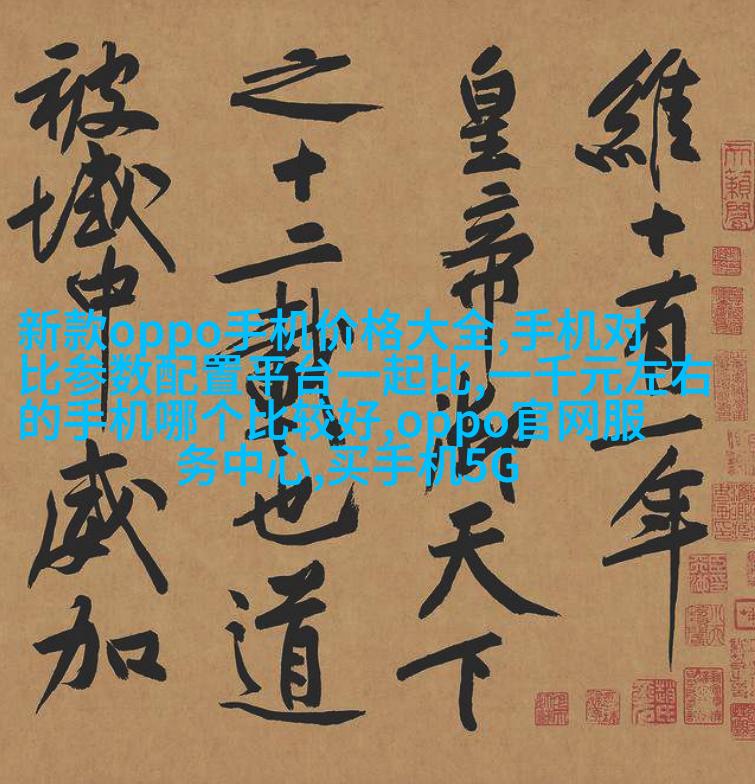 維十有一年
皇帝御天下
之十二載也道
被域中威加
新款oppo手机价格大全,手机对
比参数配置平台一起比,一千元左右
的手机哪个比较好,oppo官网服
务中心,买手机5G